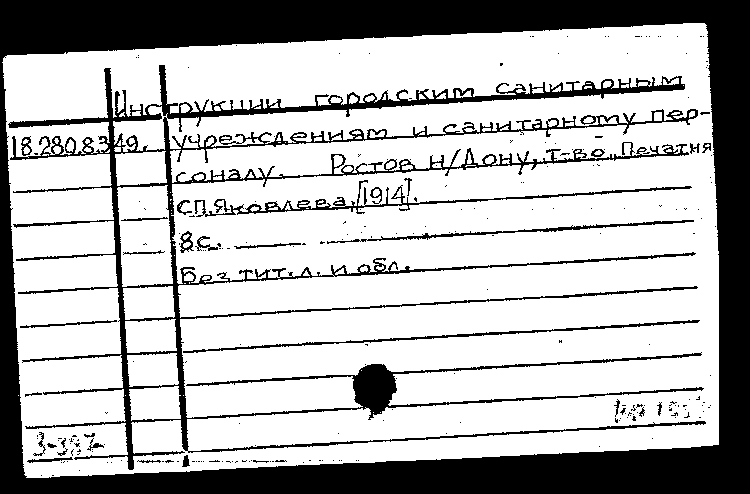 Инструкции городским санитарным
18.280.8.349. учреждениям и санитарному пер-
соналу. Ростов н/Дону, т-во „Печатня
С.П.Яковлева, [1914].
8с.
Без тит. л. и обл.
3-387